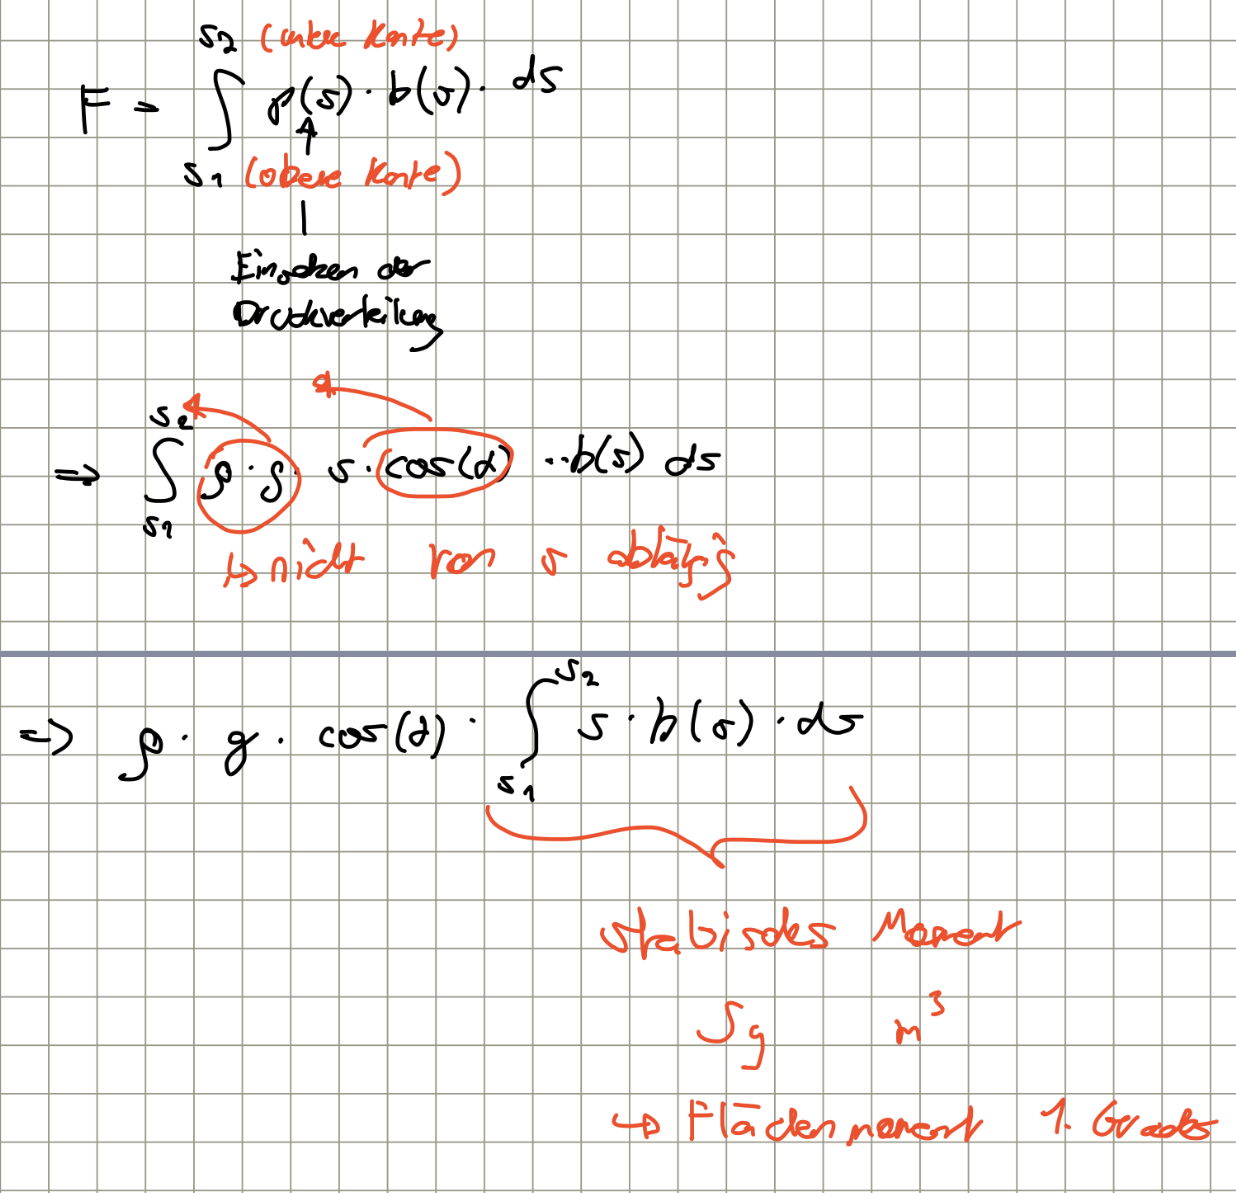 s₂ (untere Kante)
F = ∫ p(s) · b(s) · ds
s₁ (obere Kante)
Einsetzen der
Druckverteilung
s₂
⇒ ∫ ρ · g · s · cos(α) · · b(s) ds
s₁
↳ nicht von s abhängig
s₂
⇒ ρ · g · cos(α) · ∫ s · b(s) · ds
s₁
statisches Moment
Sy m³
↪ Flächenmoment 1. Grades